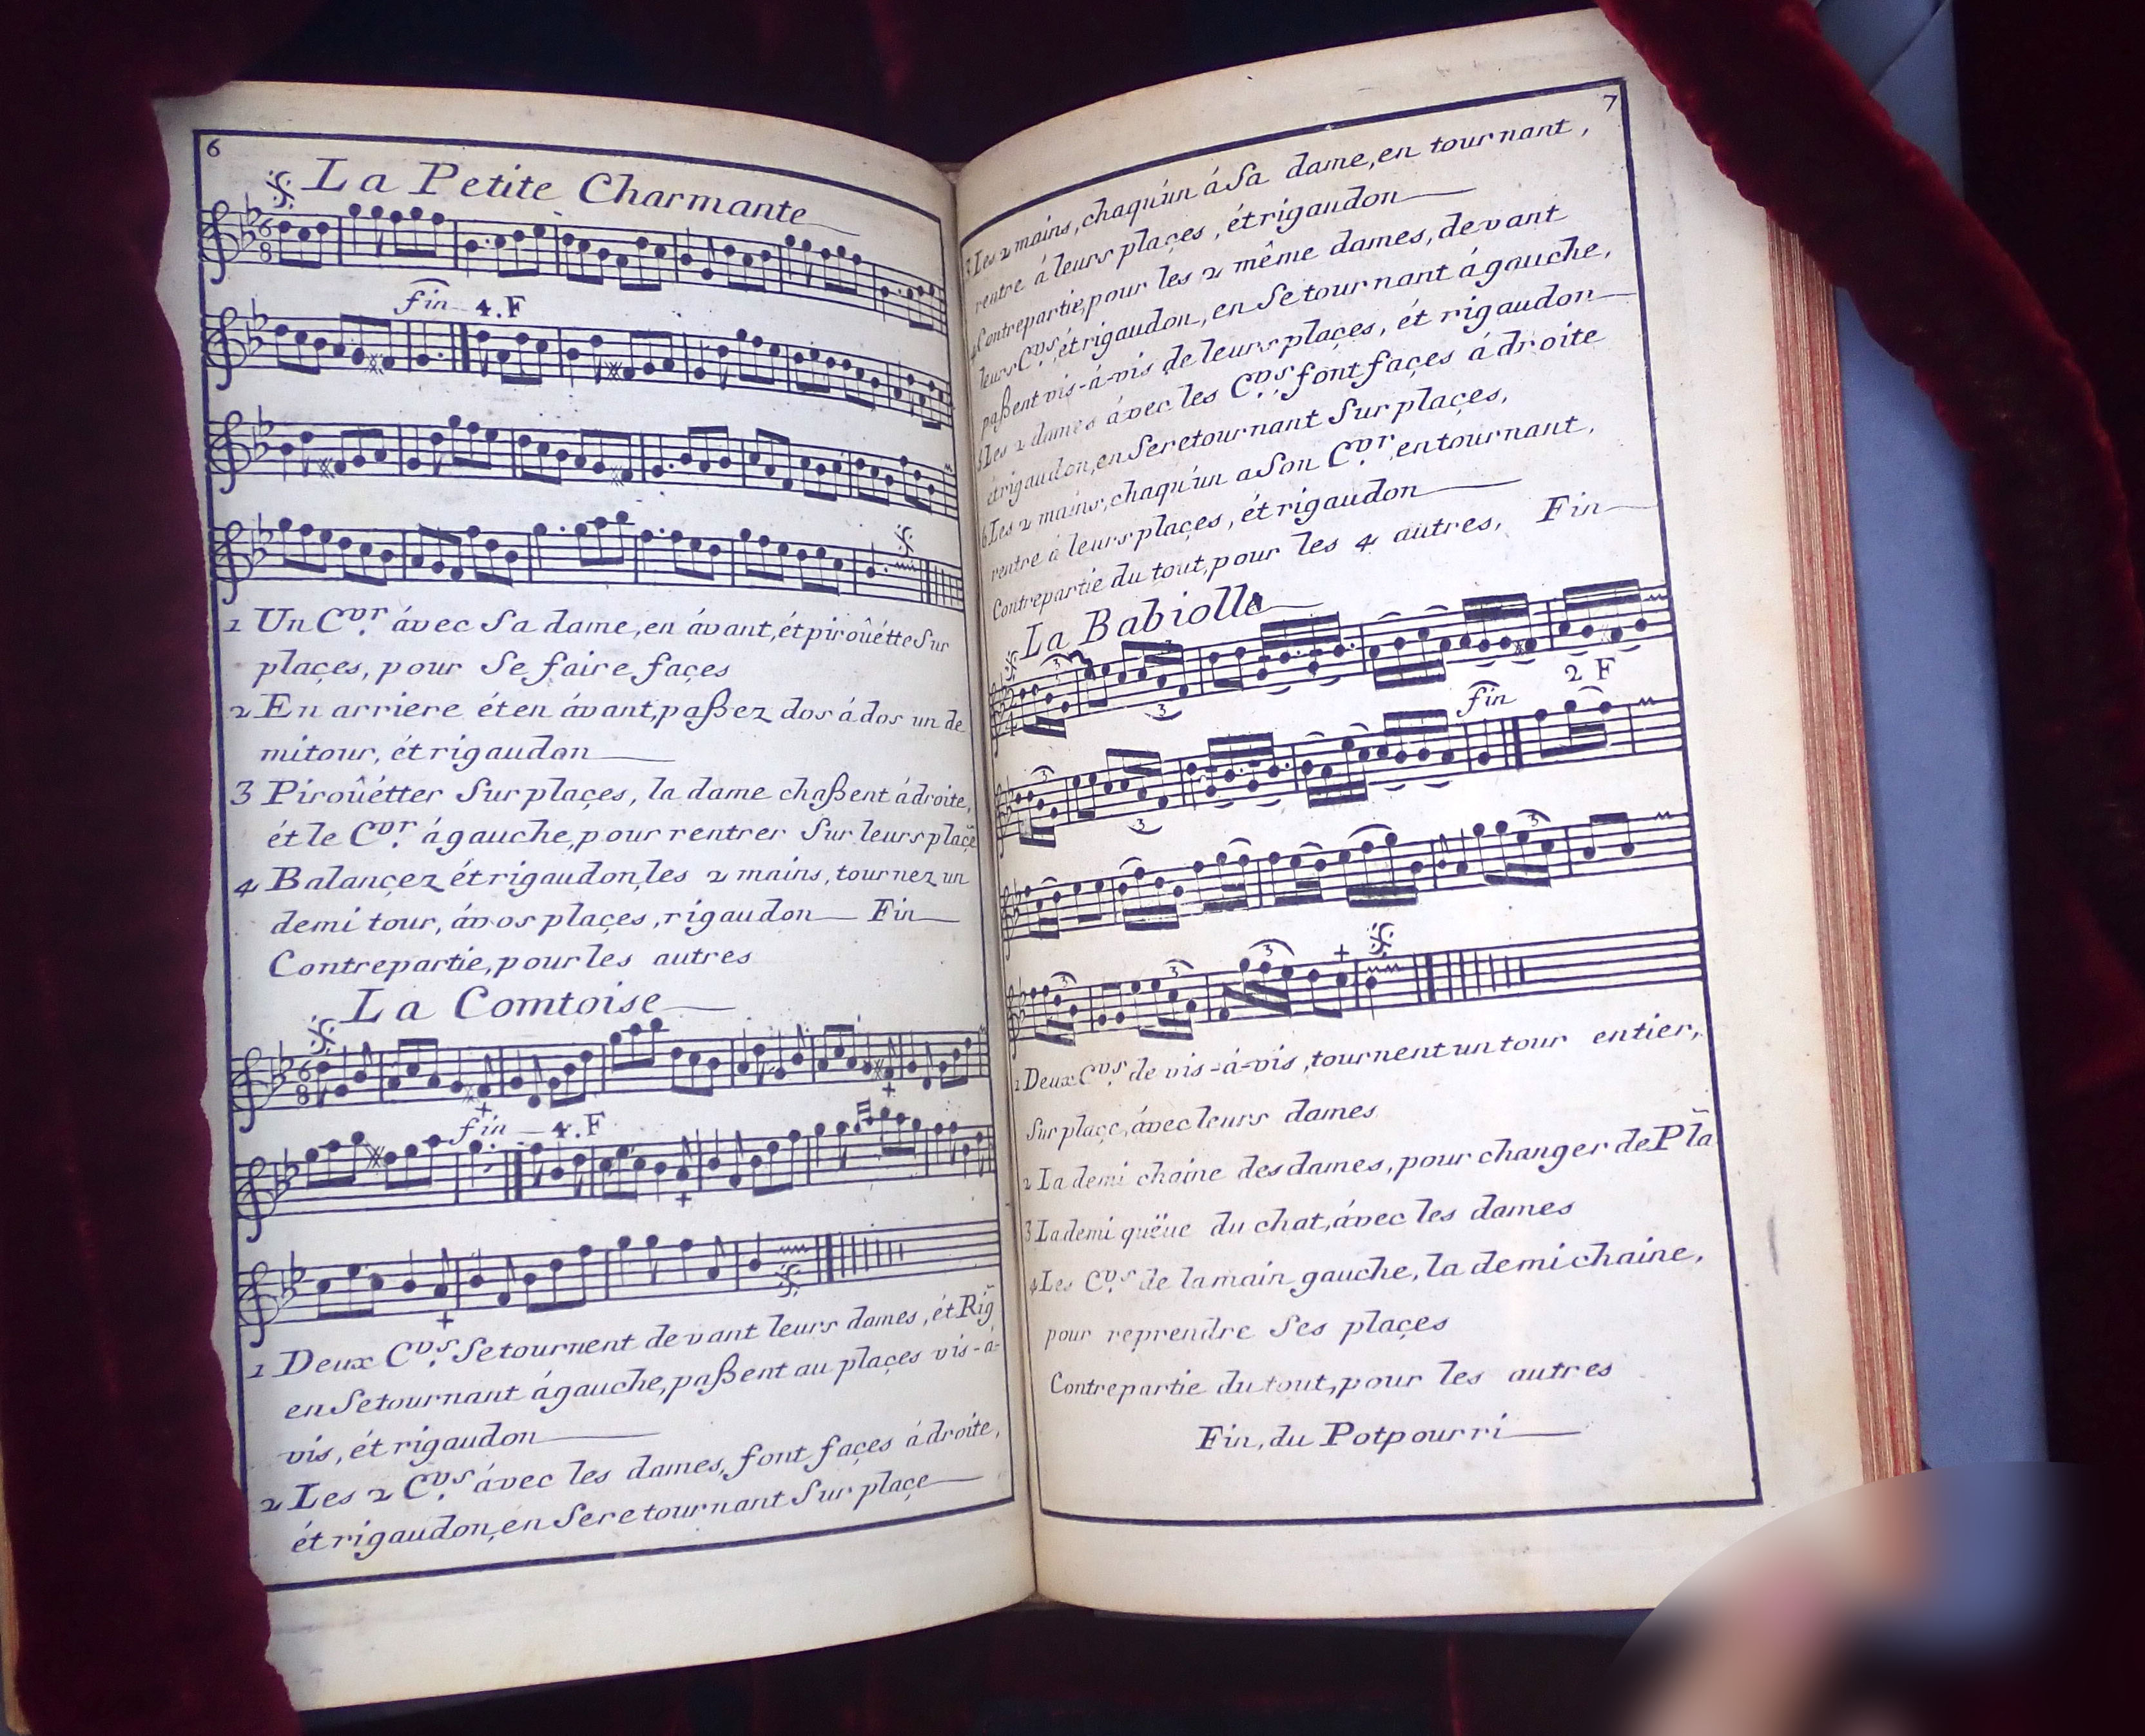 6
La Petite Charmante
fin 4.F
1 Un Cvr. ávec Sa dame, en ávant, ét piroûétte Sur
plaçes, pour Se faire façes
2 En arriere ét en ávant, paßez dos á dos un de
mi tour, ét rigaudon
3 Piroûétter Sur plaçes, la dame chaßent á droite,
ét le Cvr. á gauche, pour rentrer Sur leurs plaçe
4 Balançez ét rigaudon, les 2 mains, tournez un
demi tour, á vos plaçes, rigaudon Fin
Contrepartie, pour les autres
La Comtoise
6
8
fin 4.F
1 Deux Cvs. Se tournent devant leurs dames, ét Rig
en Se tournant á gauche, paßent au plaçes vis-á-
vis, ét rigaudon
2 Les 2 Cvs. ávec les dames, font façes á droite,
ét rigaudon, en Se retournant Sur plaçe
7
3 Les 2 mains, chaqu'un á Sa dame, en tournant,
rentre á leurs plaçes, ét rigaudon
4 Contrepartie, pour les 2 même dames, devant
leurs Cvs. ét rigaudon, en Se tournant á gauche,
paßent vis-á-vis de leurs plaçes, ét rigaudon
5 Les 2 dames ávec les Cvs. font façes á droite
ét rigaudon, en Se retournant Sur plaçes,
6 Les 2 mains, chaqu'un a Son Cvr. en tournant,
rentre á leurs plaçes, ét rigaudon
Contrepartie du tout, pour les 4 autres, Fin
La Babiolle
3
3
fin 2 F
3
3
3
3 3 3
1 Deux Cvs. de vis-á-vis, tournent un tour entier,
Sur plaçe, ávec leurs dames
2 La demi chaine des dames, pour changer de Pla
3 La demi quëue du chat, ávec les dames
4 Les Cvs. de la main gauche, la demi chaine,
pour reprendre Ses plaçes
Contrepartie du tout, pour les autres
Fin, du Potpourri